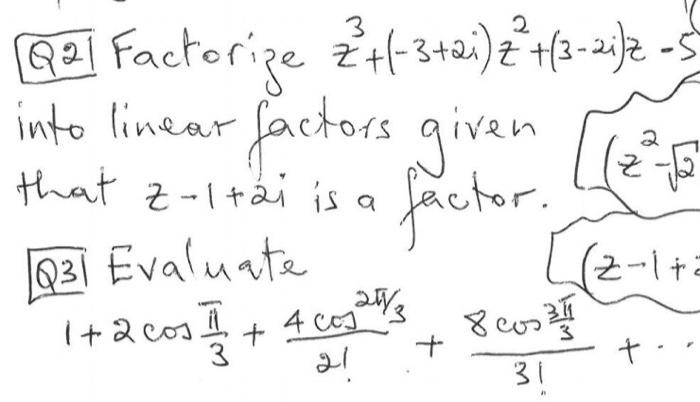 Q2 Factorize z³+(-3+2i)z²+(3-2i)z -5
into linear factors given
that z-1+2i is a factor.
(z²-√2
Q3 Evaluate
(z-1+2
1+2cos π/3 + 4cos 2π/3 / 2! + 8cos 3π/3 / 3! + ...